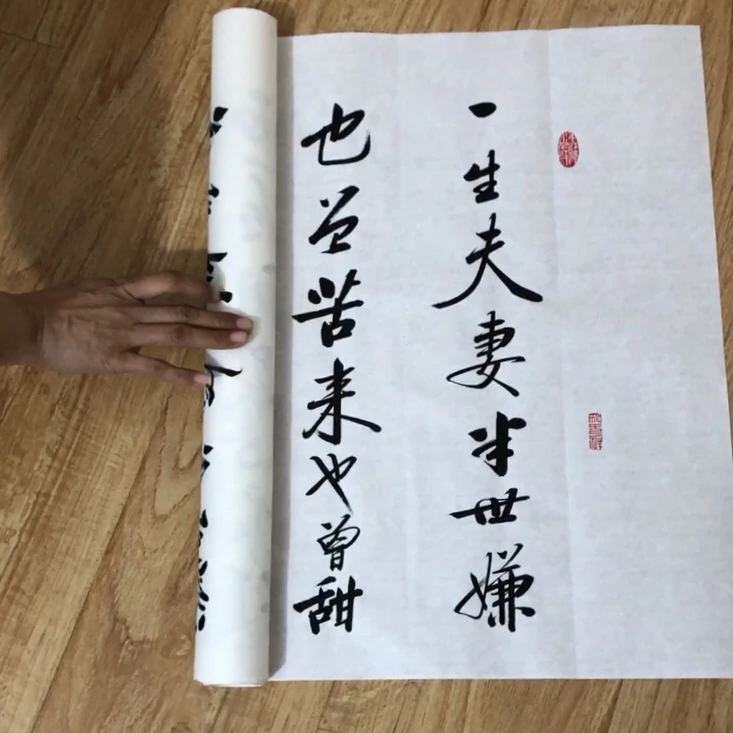 一生夫妻半世嫌
也曾苦来也曾甜